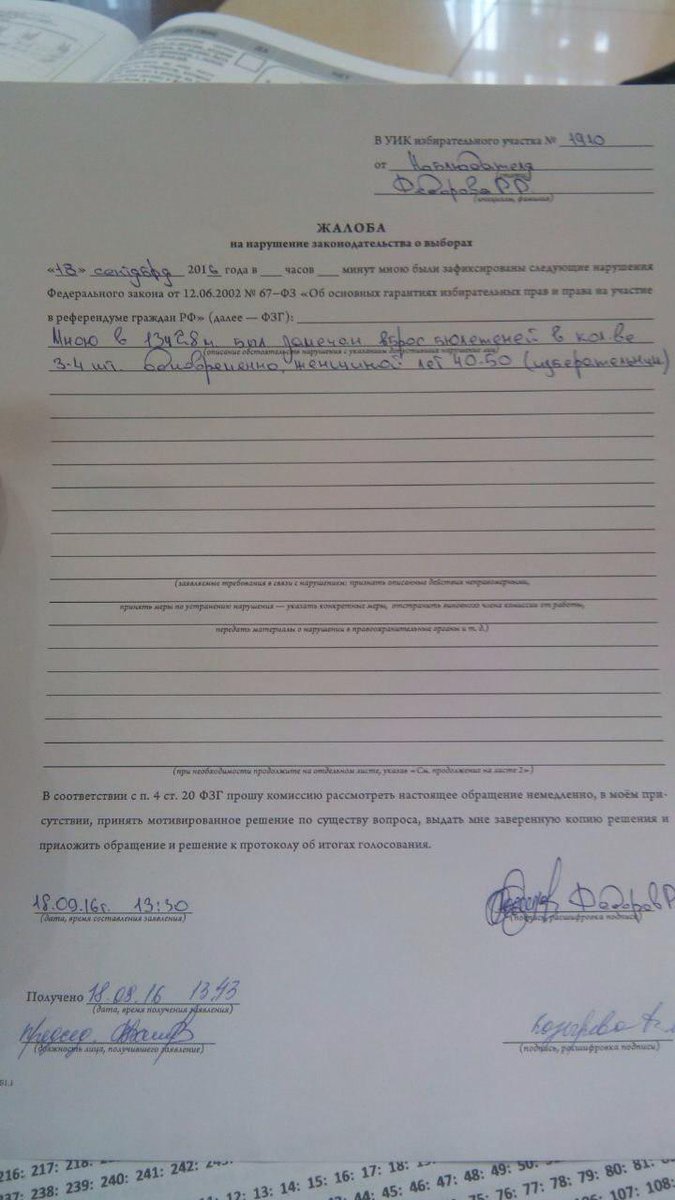 ДА
НЕТ
В УИК избирательного участка № 1910
от Наблюдателя
Федорова Р.Р.
(инициалы, фамилия)
ЖАЛОБА
на нарушение законодательства о выборах
«18» сентября 2016 года в ___ часов ___ минут мною были зафиксированы следующие нарушения
Федерального закона от 12.06.2002 № 67–ФЗ «Об основных гарантиях избирательных прав и права на участие
в референдуме граждан РФ» (далее — ФЗГ):
Мною в 13ч28м. был замечен вброс бюлетеней в кол-ве
(описание обстоятельств нарушения с указанием допустивших нарушение лиц)
3-4 шт. одновременно, женщиной лет 40-50 (избирательный)
(заявляемые требования в связи с нарушением: признать описанные действия неправомерными,
принять меры по устранению нарушения — указать конкретные меры, отстранить виновного члена комиссии от работы,
передать материалы о нарушении в правоохранительные органы и т. д.)
(при необходимости продолжите на отдельном листе, указав «См. продолжение на листе 2»)
В соответствии с п. 4 ст. 20 ФЗГ прошу комиссию рассмотреть настоящее обращение немедленно, в моём при-
сутствии, принять мотивированное решение по существу вопроса, выдать мне заверенную копию решения и
приложить обращение и решение к протоколу об итогах голосования.
18.09.16г. 13:30
Федоров Р
(дата, время составления заявления)
(подпись, расшифровка подписи)
Получено 18.09.16 1343
(дата, время получения заявления)
(должность лица, получившего заявление)
(подпись, расшифровка подписи)
216: 217: 218:
237: 238: 239: 240: 241: 242: 243:
12: 13: 14: 15: 16: 17: 18:
44: 45: 46: 47: 48: 49: 50:
75: 76: 77: 78: 79: 80: 81:
107: 108: